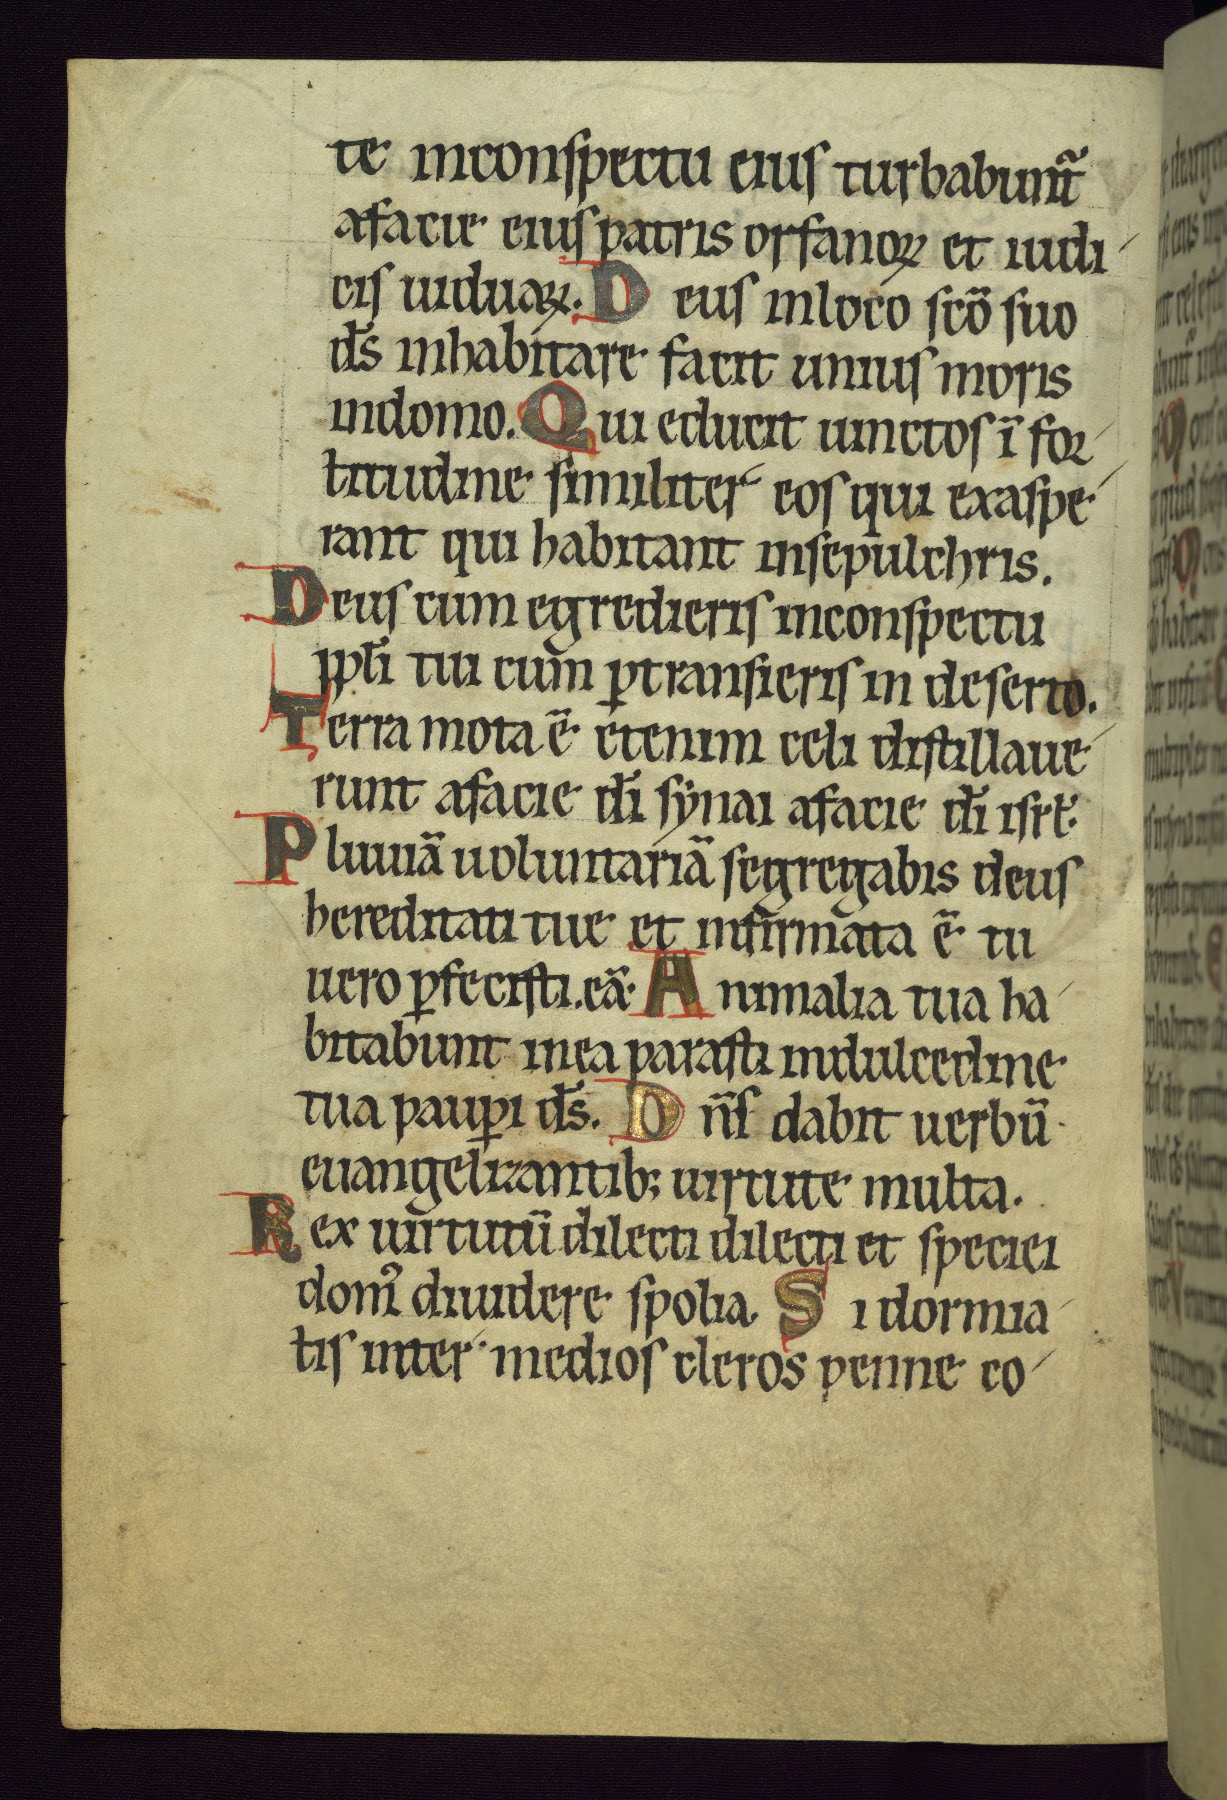 te inconspectu eius turbabunt᷑
afacie eius patris orfanoꝝ et iudi
cis uiduaꝝ. Deus inloco sc̄o suo
ds̄ inhabitare facit unius moris
indomo. Qui educit uinctos ī for
titudine similiter eos qui exaspe
rant qui habitant insepulchris.
Deus cum egredieris inconspectu
ppl̄i tui cum ꝑtransieris in deserto.
Terra mota ē etenim celi distillaue
runt afacie dī synai afacie dī isrł.
Pluuiā uoluntariā segregabis deus
hereditati tue et infirmata ē tu
uero ꝑfecisti.eā. Animalia tua ha
bitabunt inea parasti indulcedine
tua pauꝑi ds̄. Dn̄s dabit uerbū
euangelizantib; uirtute multa.
Rex uirtutū dilecti dilecti et speciei
domꝰ diuidere spolia. Si dormia
tis inter medios cleros penne co